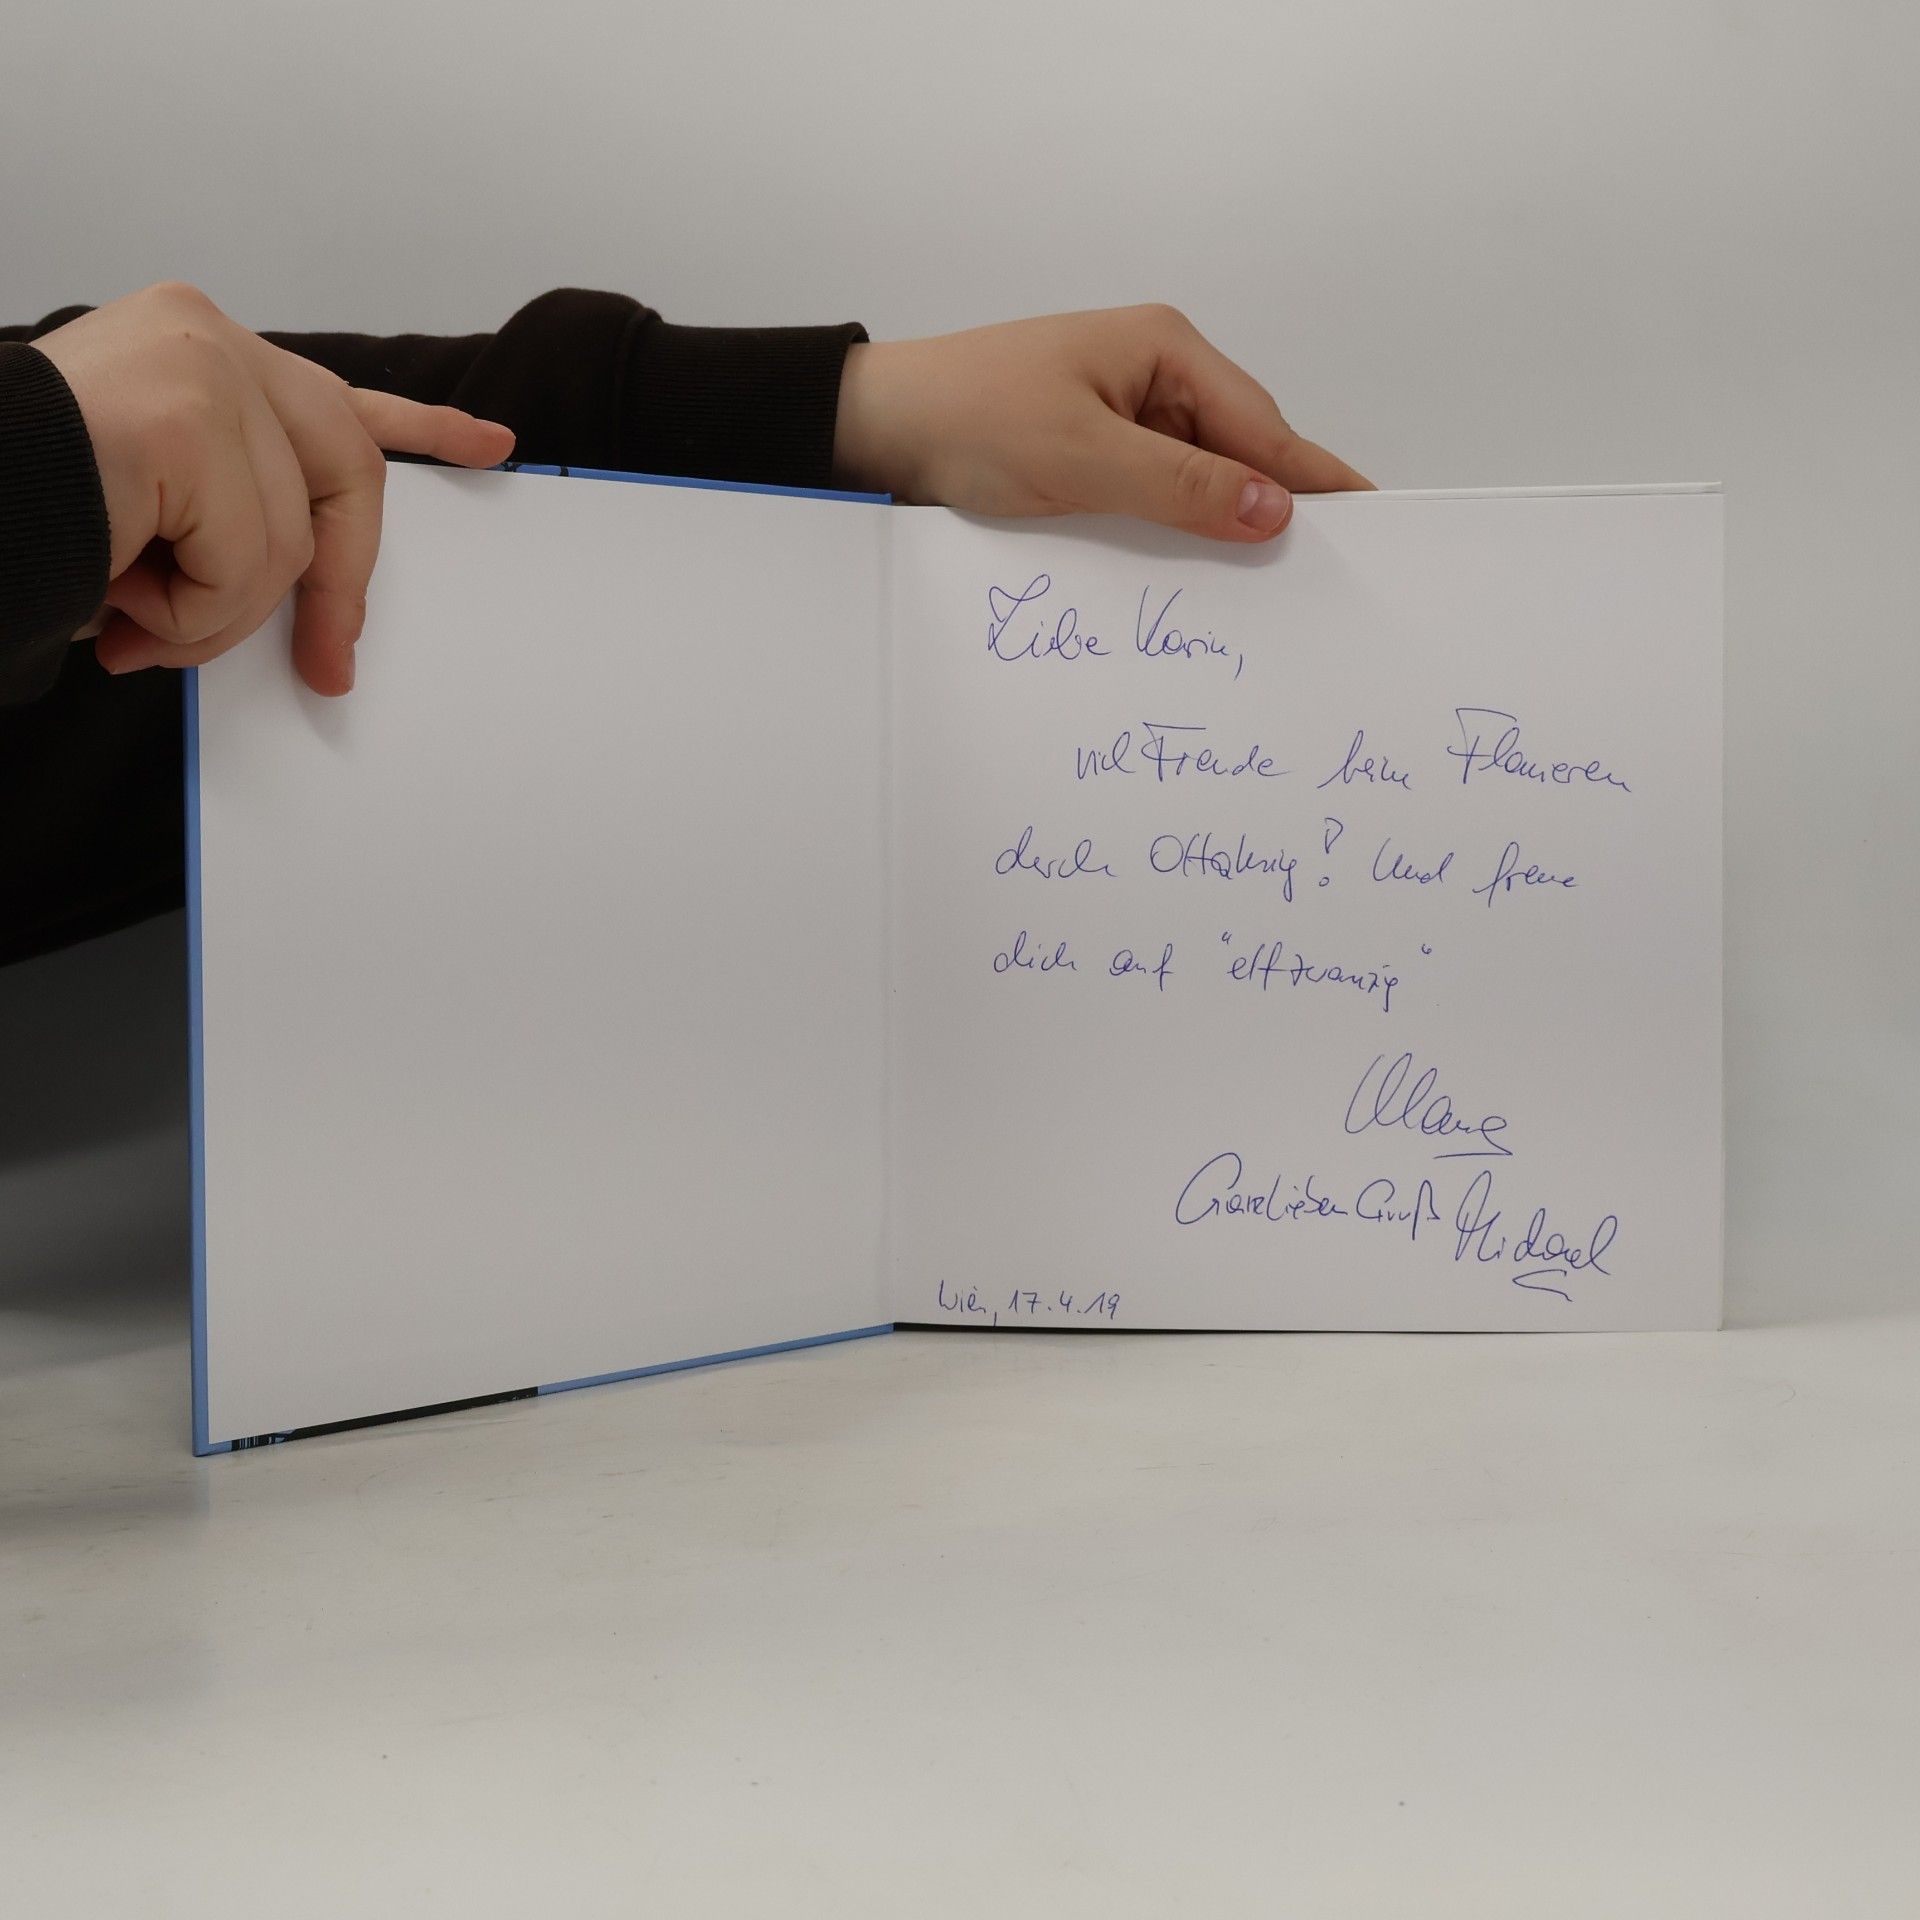 Liebe Karin,
viel Freude beim Flanieren
durch Ottakring! Und freue
dich auf "elfzwanzig"
Ganz lieben Gruß Michael
Wien, 17.4.19